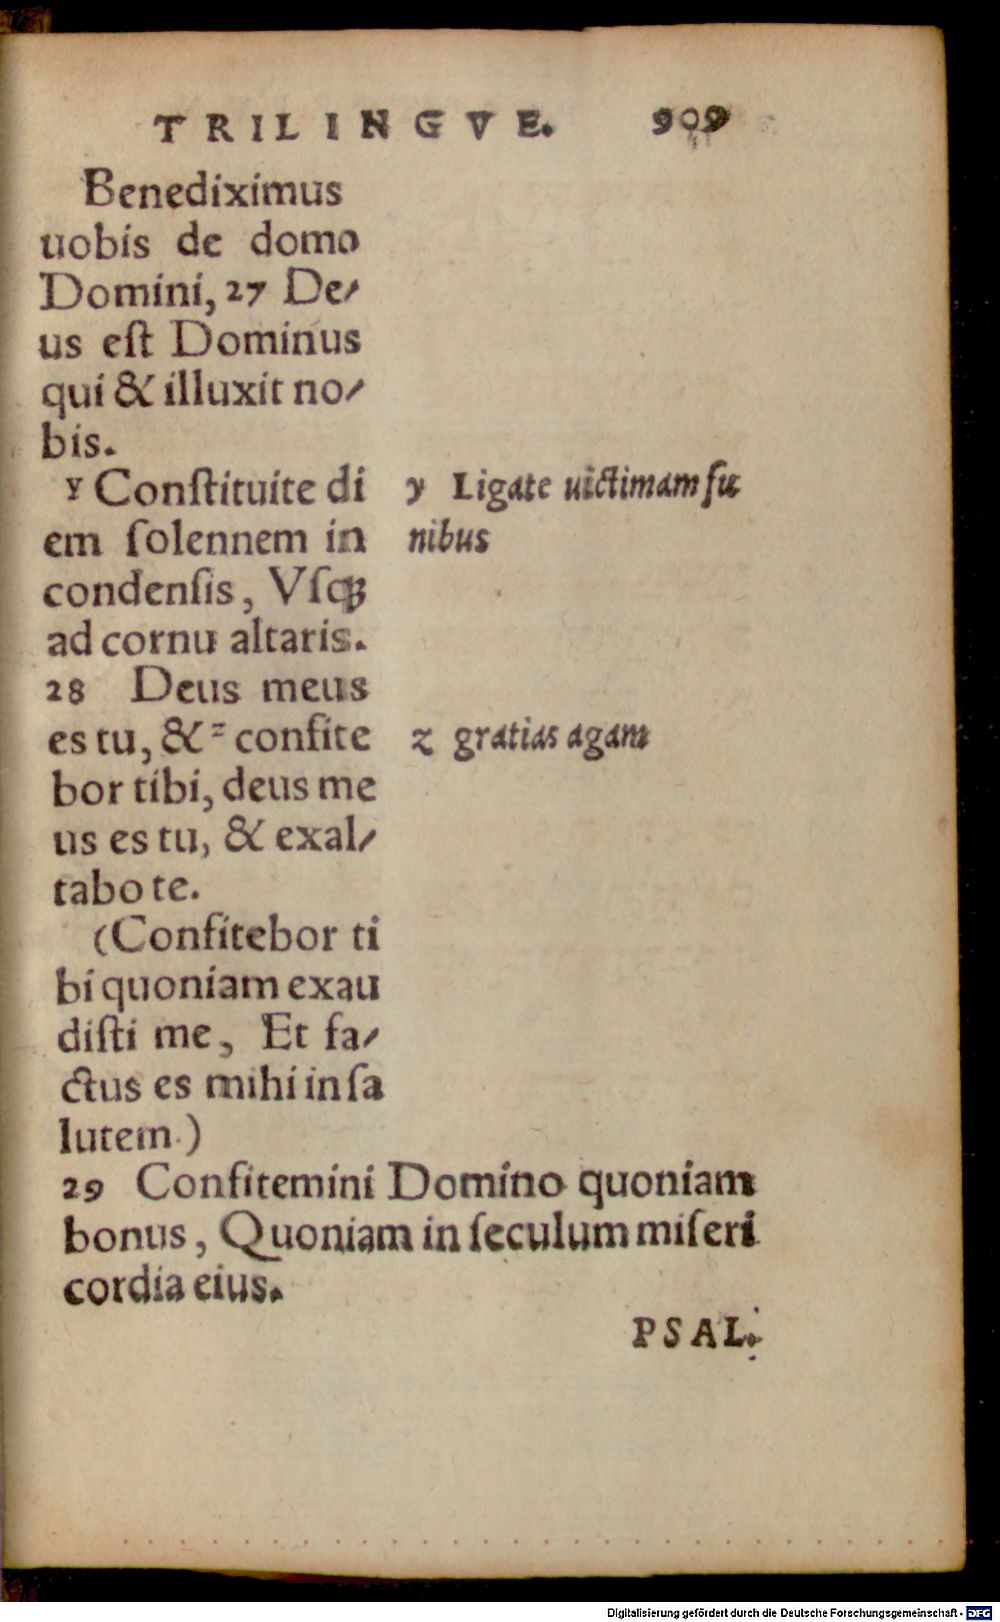 TRILINGVE. 909
Benediximus
uobis de domo
Domini, 27 De/
us eſt Dominus
qui & illuxit no/
bis.
y Conſtituite di
em ſolennem in
condenſis, Vſqꝫ
ad cornu altaris.
28 Deus meus
es tu, & z confite
bor tibi, deus me
us es tu, & exal/
tabo te.
(Confitebor ti
bi quoniam exau
diſti me, Et fa/
ctus es mihi in ſa
lutem.)
y Ligate uictimam fu
nibus
z gratias agam
29 Confitemini Domino quoniam
bonus, Quoniam in ſeculum miſeri
cordia eius.
PSAL.
Digitalisierung gefördert durch die Deutsche Forschungsgemeinschaft - DFG